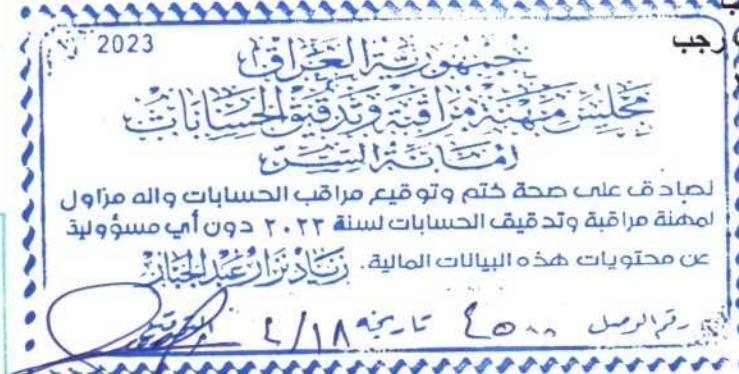 رجب
2023
جمهورية العراق
مجلس مهنة مراقبة وتدقيق الحسابات
امانة السر
نصادق على صحة ختم وتوقيع مراقب الحسابات وانه مزاول
لمهنة مراقبة وتدقيق الحسابات لسنة ٢٠٢٣ دون أي مسؤولية
عن محتويات هذه البيانات المالية. زياد نزار عبد الجبار
رقم الوصل ٤٥٠٠ تاريخه ٤/١٨ التوقيع